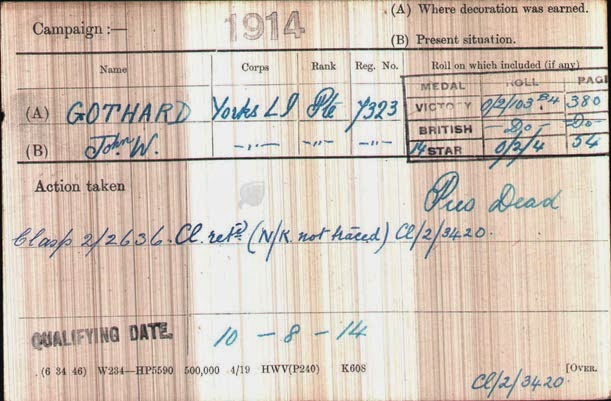 (A) Where decoration was earned.
Campaign :— 1914
(B) Present situation.
Name Corps Rank Reg. No. Roll on which included (if any)
MEDAL ROLL PAGE
(A) GOTHARD Yorks L I Pte 7323 VICTORY 0/2/103 B4 380
BRITISH — Do — — Do —
(B) John W. — " — — " — — " — 14 STAR 0/2/4 54
Action taken
Pres Dead
Clasp 2/2636. Cl. retd (N/K not traced) Cl/2/3420.
QUALIFYING DATE. 10 – 8 – 14
(6 34 46) W234—HP5590 500,000 4/19 HWV(P240) K608
[OVER.
Cl/2/3420.